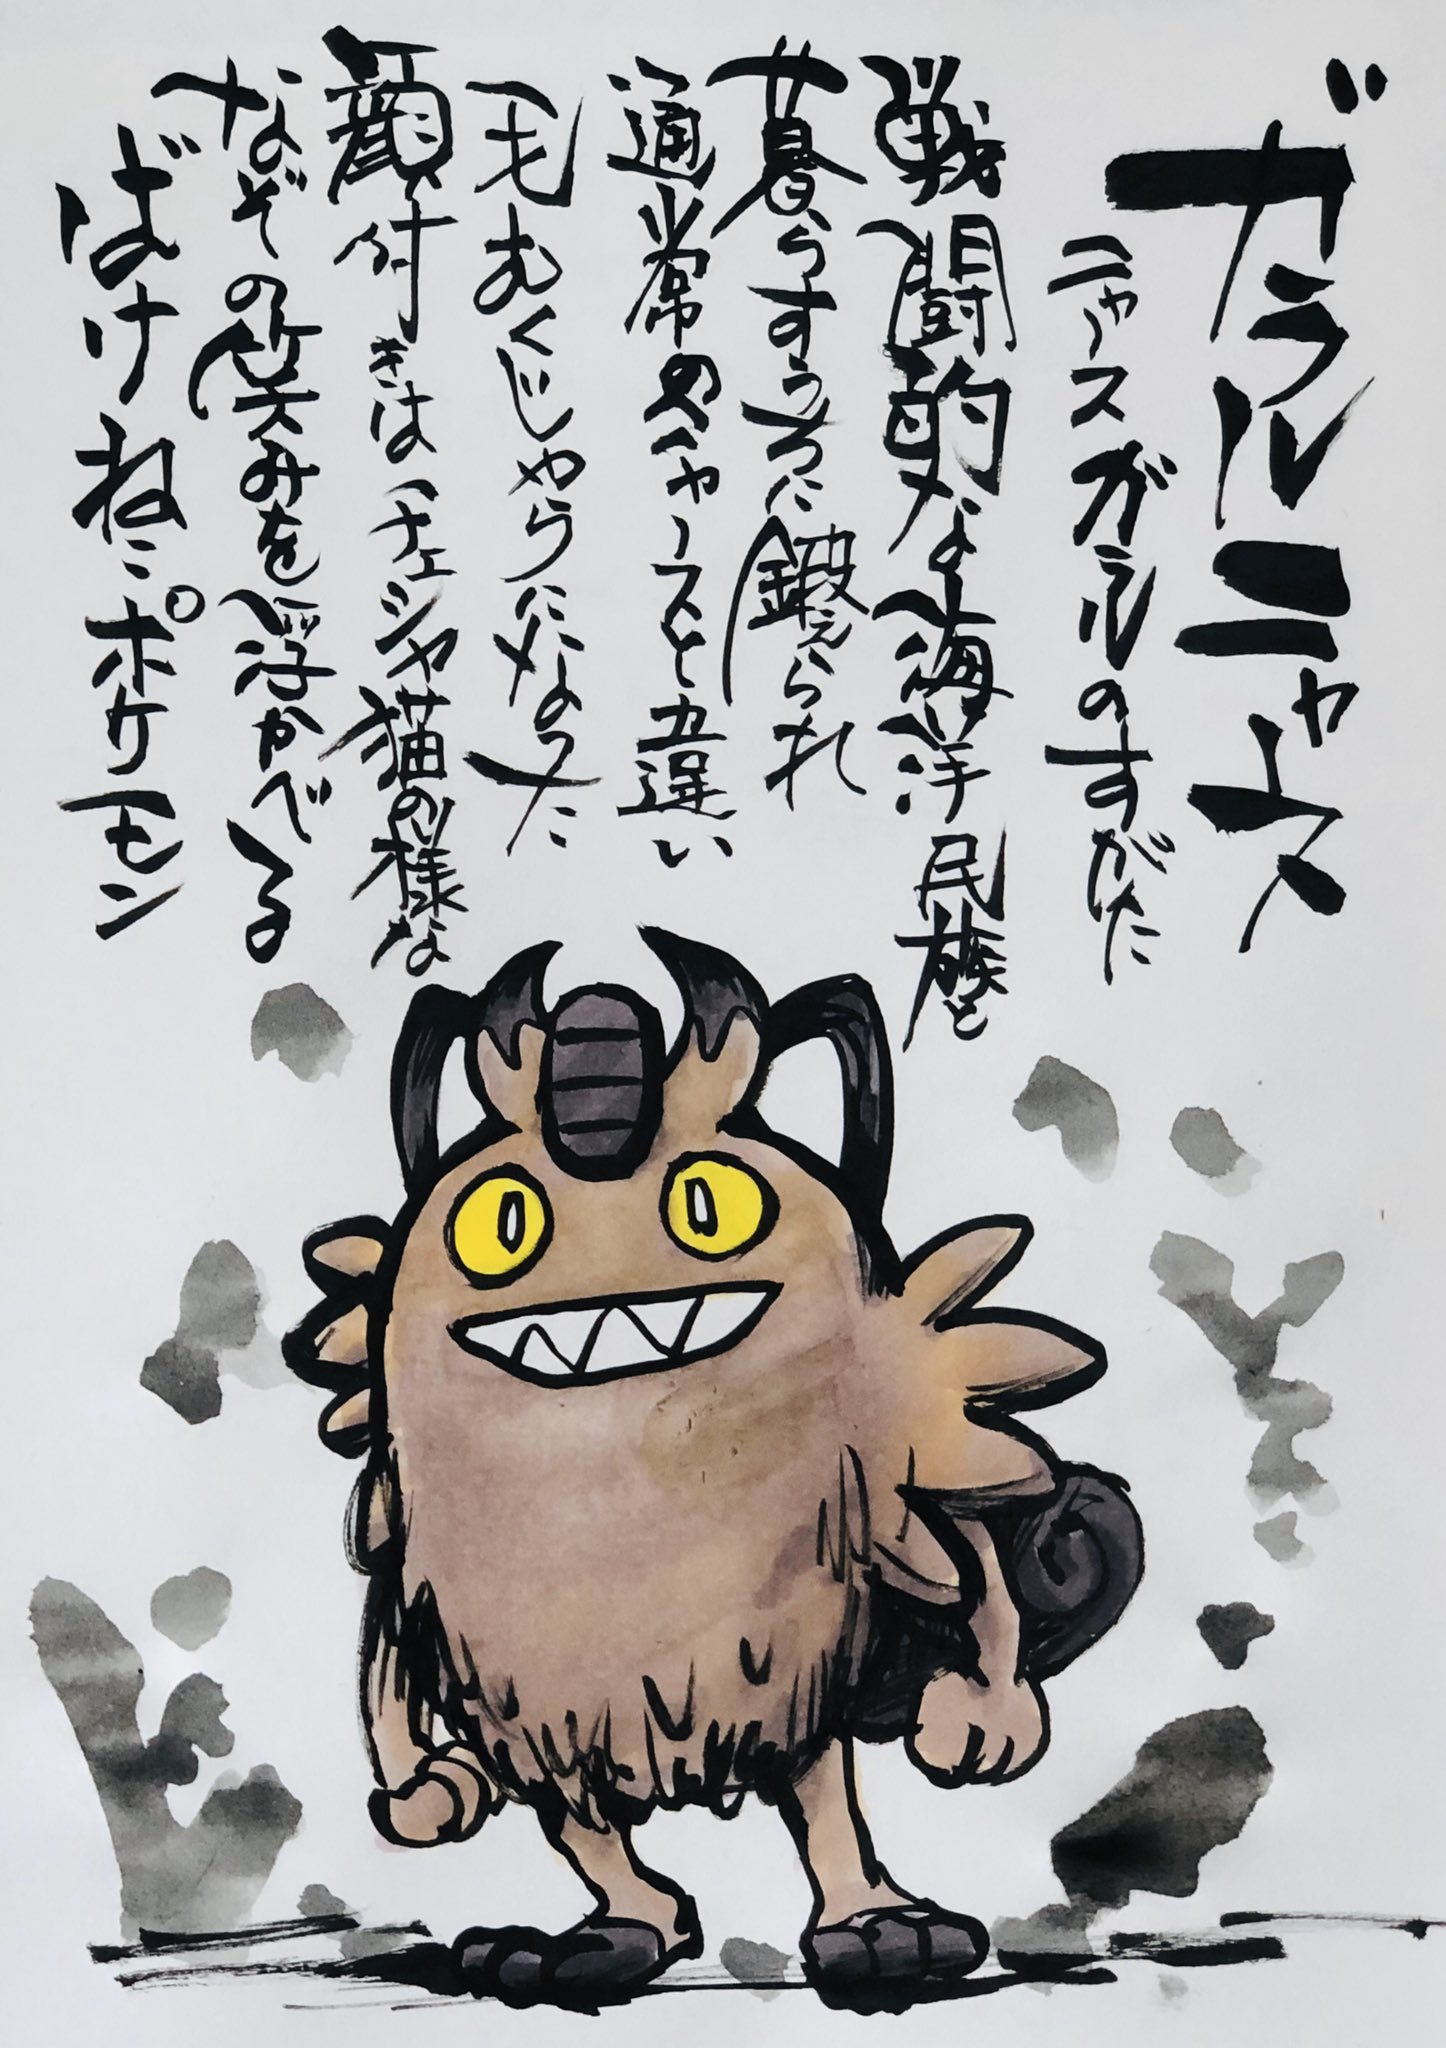 ガラルニャース
ニャースガラルのすがた
戦闘的な海洋民族と
暮らすうちに鍛えられ
通常のニャースと違い
毛むくじゃらになった
顔付きはチェシャ猫の様な
なぞの笑みを浮かべる
ばけねこポケモン